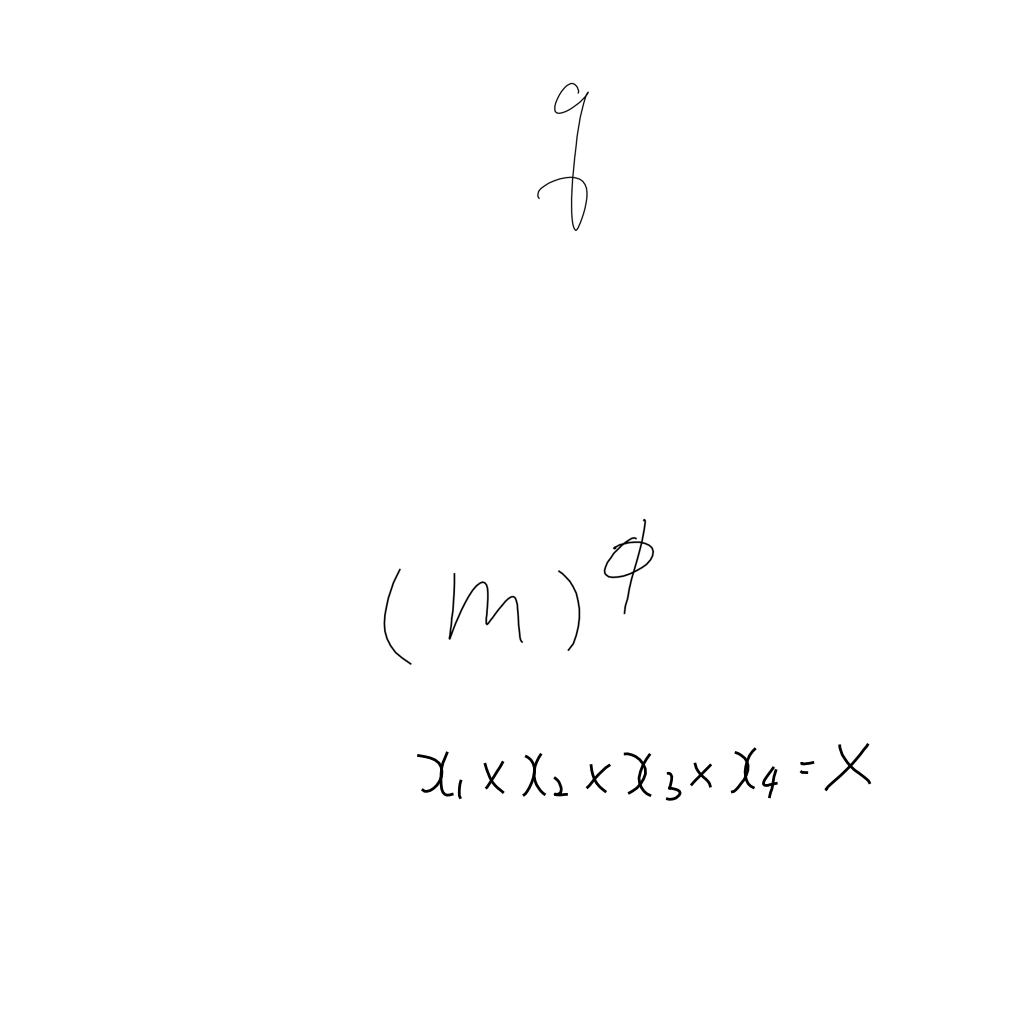 q
(m)^ϕ
x₁ × x₂ × x₃ × x₄ = X